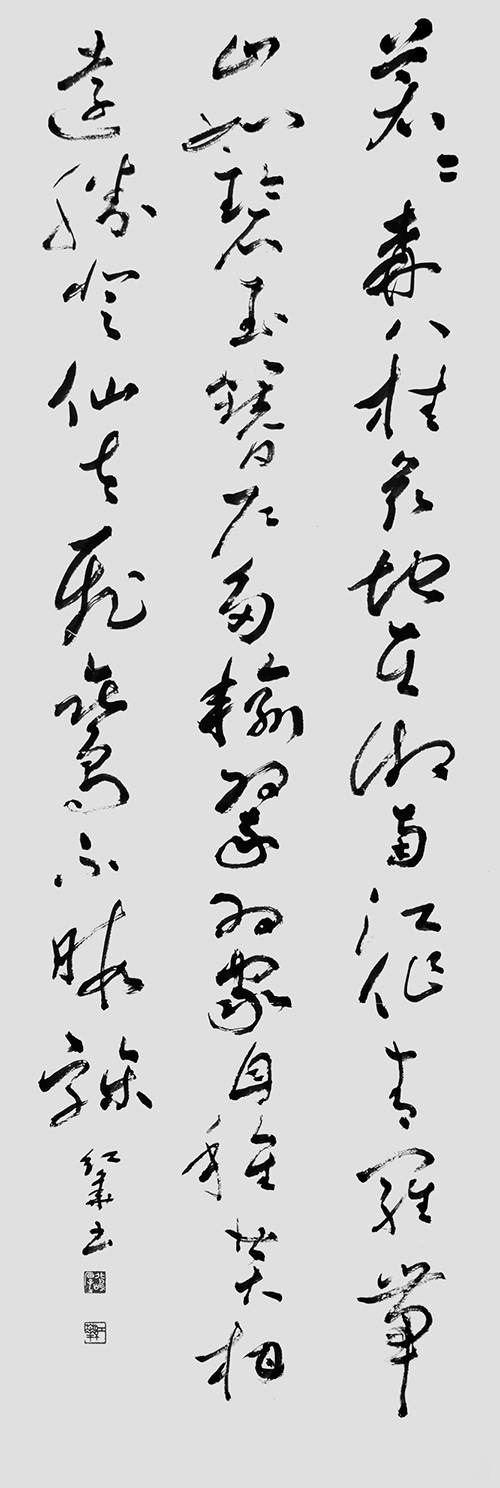 蒼〻森八桂兹地在湘南江作青羅帶
山如碧玉簪户多輸翠羽家自種黄柑
遠勝登仙去飛鸞不暇驂
紅華書